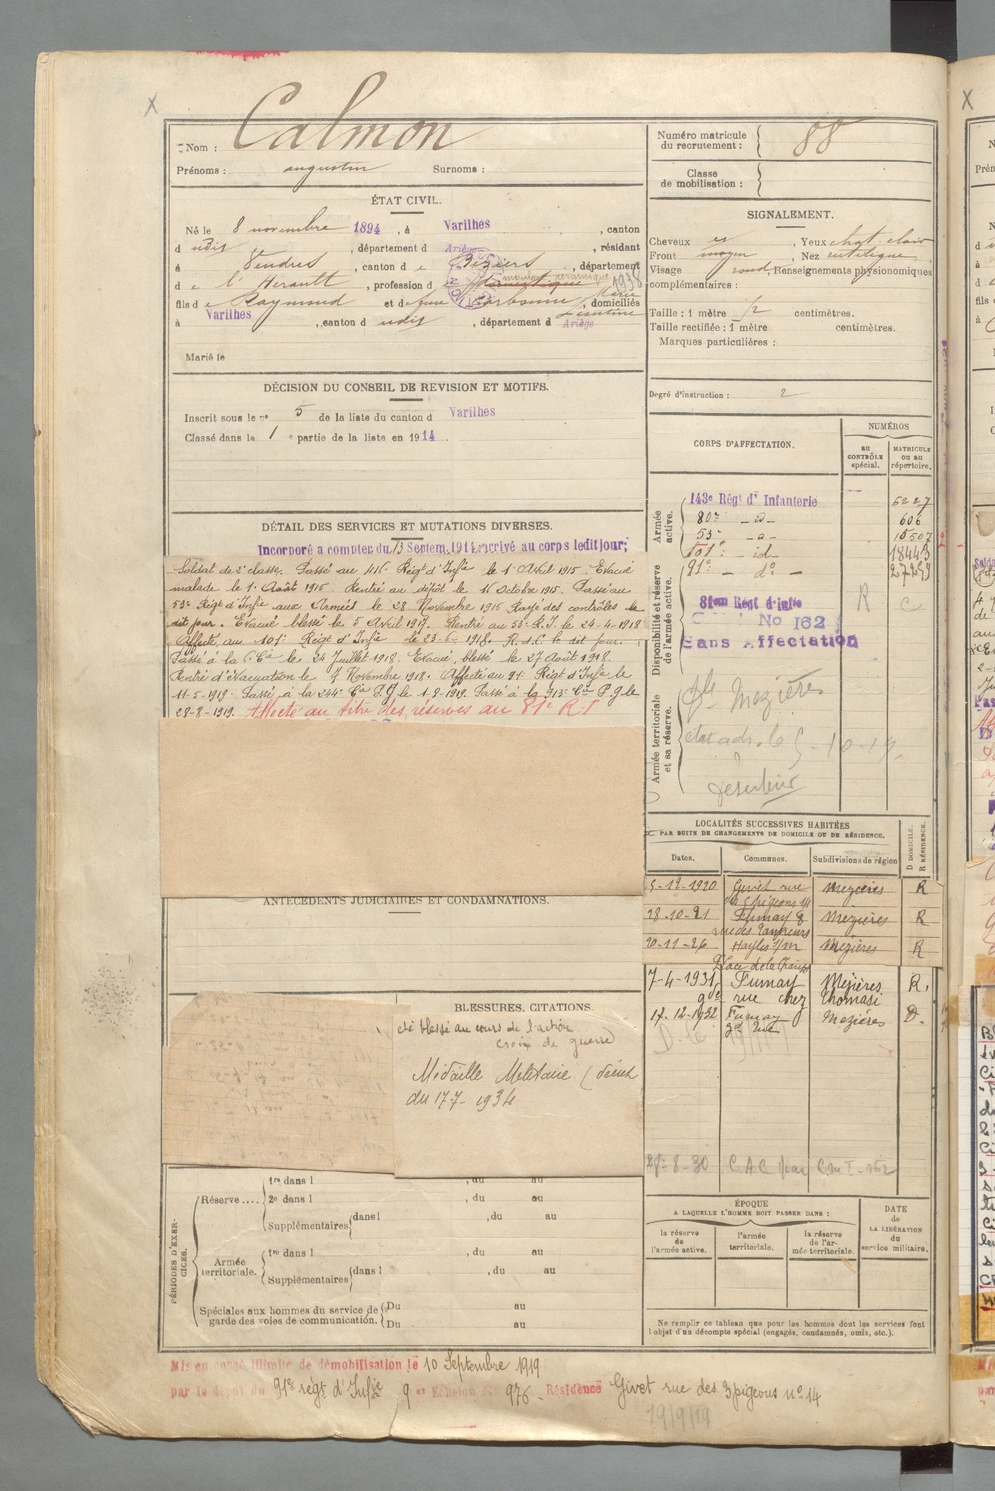 Nom : Calmon
Prénoms : augustin Surnoms :
Numéro matricule
du recrutement : 88
Classe
de mobilisation :
ÉTAT CIVIL.
Né le 8 novembre 1894, à Varilhes, canton
dudit, département d Ariège, résidant
à Vendres, canton de Béziers, département
de l'Hérault, profession d
fils de Raymond et de, domiciliés
à Varilhes, canton dudit, département d Ariège
Marié le
SIGNALEMENT.
Cheveux, Yeux chat. clair
Front moyen, Nez
Visage rond, Renseignements physionomiques
complémentaires :
Taille : 1 mètre centimètres.
Taille rectifiée : 1 mètre centimètres.
Marques particulières :
Degré d'instruction : 2
DÉCISION DU CONSEIL DE REVISION ET MOTIFS.
Inscrit sous le n° 5 de la liste du canton d Varilhes
Classé dans la 1e partie de la liste en 1914.
DÉTAIL DES SERVICES ET MUTATIONS DIVERSES.
Incorporé a compter du 13 Septem. 1914, arrivé au corps ledit jour;
Soldat de 2e classe. Passé au 416e Régt d'Infie le 1er Avril 1915. Evacué
malade le 1er Août 1915. Rentré au dépôt le 16 Octobre 1915. Passé au
53e Régt d'Infie aux Armées le 28 Novembre 1916 Rayé des contrôles le
dit jour. Evacué blessé le 5 Avril 1917. Rentré au 53e R.I. le 24-4-1918
Affecté au 101e Régt d'Infie le 23-6-1918. R. d. C le dit jour.
Passé à la 6e Cie le 24 Juillet 1918. Evacué, blessé le 27 Août 1918.
Rentré d'évacuation le 7 Novembre 1918. Affecté au 91e Régt d'Infie le
11-5-1919. Passé à la 244e Cie P.G. le 1-8-1919. Passé à la 913e Cie P.G. le
28-8-1919. Affecté au titre des réserves au 81e R.I
CORPS D'AFFECTATION.
NUMÉROS
AU CONTRÔLE spécial.
MATRICULE OU AU répertoire.
Armée active.
143e Régt d'Infanterie 5227
80e -d- 606
53e -d- 10507
101e -id- 18443
91e -do-
Disponibilité et réserve de l'armée active.
81em Régt d'Infie
No 162
Sans Affectation
R
Armée territoriale et sa réserve.
Mezières
LOCALITÉS SUCCESSIVES HABITÉES
PAR SUITE DE CHANGEMENTS DE DOMICILE OU DE RÉSIDENCE.
Dates. Communes. Subdivisions de région D DOMICILE. R RÉSIDENCE.
5-12-1920 Givet rue Mezières R
des 3 pigeons 14
28-10-21 Fumay 8 Mezières R
rue des Tanneurs
20-11-26 Haybes s/m Mezières R
7-4-1931 Fumay Mézières R.
gde rue chez Thomasi
17-12-1932 Fumay Mezières D.
gde rue
ANTÉCÉDENTS JUDICIAIRES ET CONDAMNATIONS.
BLESSURES, CITATIONS
cité blessé au cours de l'action
Croix de guerre
Médaille Militaire (décret
du 17-7-1934
28-8-30 C.A.C
PÉRIODES D'EXERCICES.
Réserve ....
1re dans l , du au
2e dans l , du au
Supplémentaires dans l , du au
Armée territoriale.
1re dans l , du au
Supplémentaires dans l , du au
Spéciales aux hommes du service de garde des voies de communication.
Du au
Du au
ÉPOQUE
A LAQUELLE L'HOMME DOIT PASSER DANS :
la réserve de l'armée active. l'armée territoriale. la réserve de l'armée territoriale.
DATE de LA LIBÉRATION du service militaire.
Ne remplir ce tableau que pour les hommes dont les services font
l'objet d'un décompte spécial (engagés, condamnés, omis, etc.).
Mis en congé illimité de démobilisation le 10 Septembre 1919
par le dépôt du 91e régt d'Infie 9 e Echelon No 976 - Résidence Givet rue des 3 pigeons no 14
19/9/19